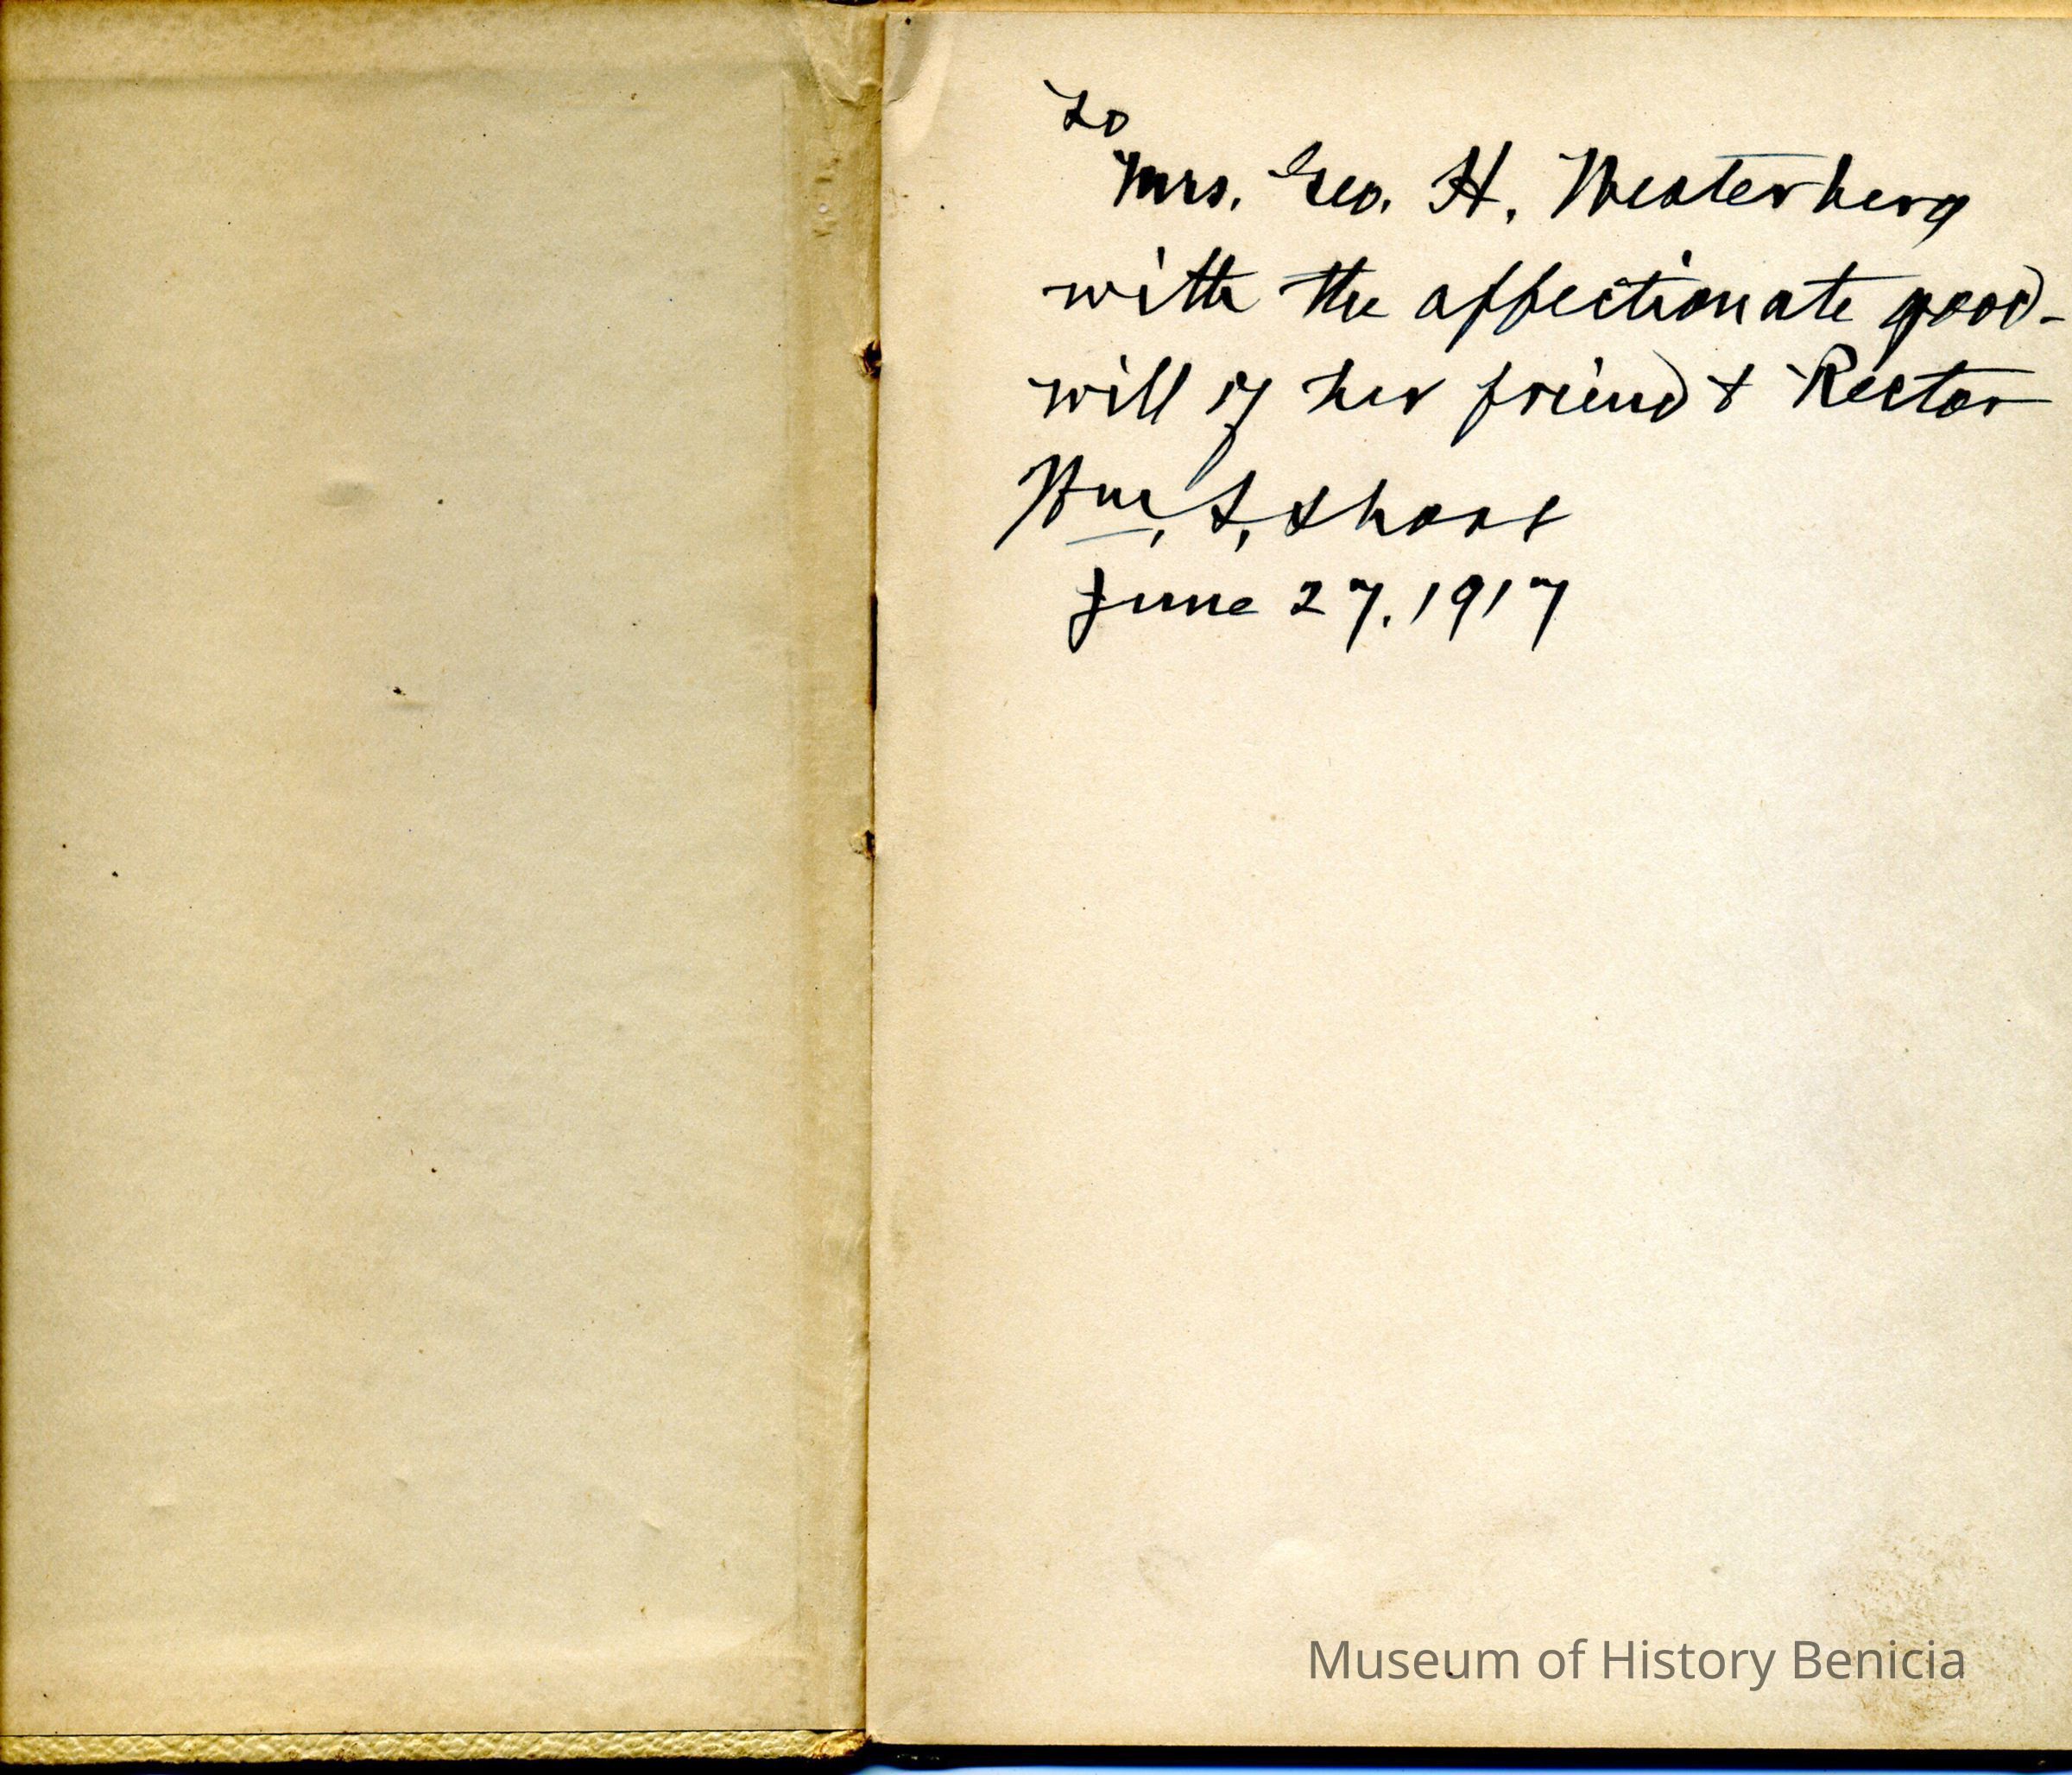 To
Mrs. Geo. H. Westerberg
with the affectionate good-
will of her friend & Rector
Wm. S. Short
June 27. 1917
Museum of History Benicia